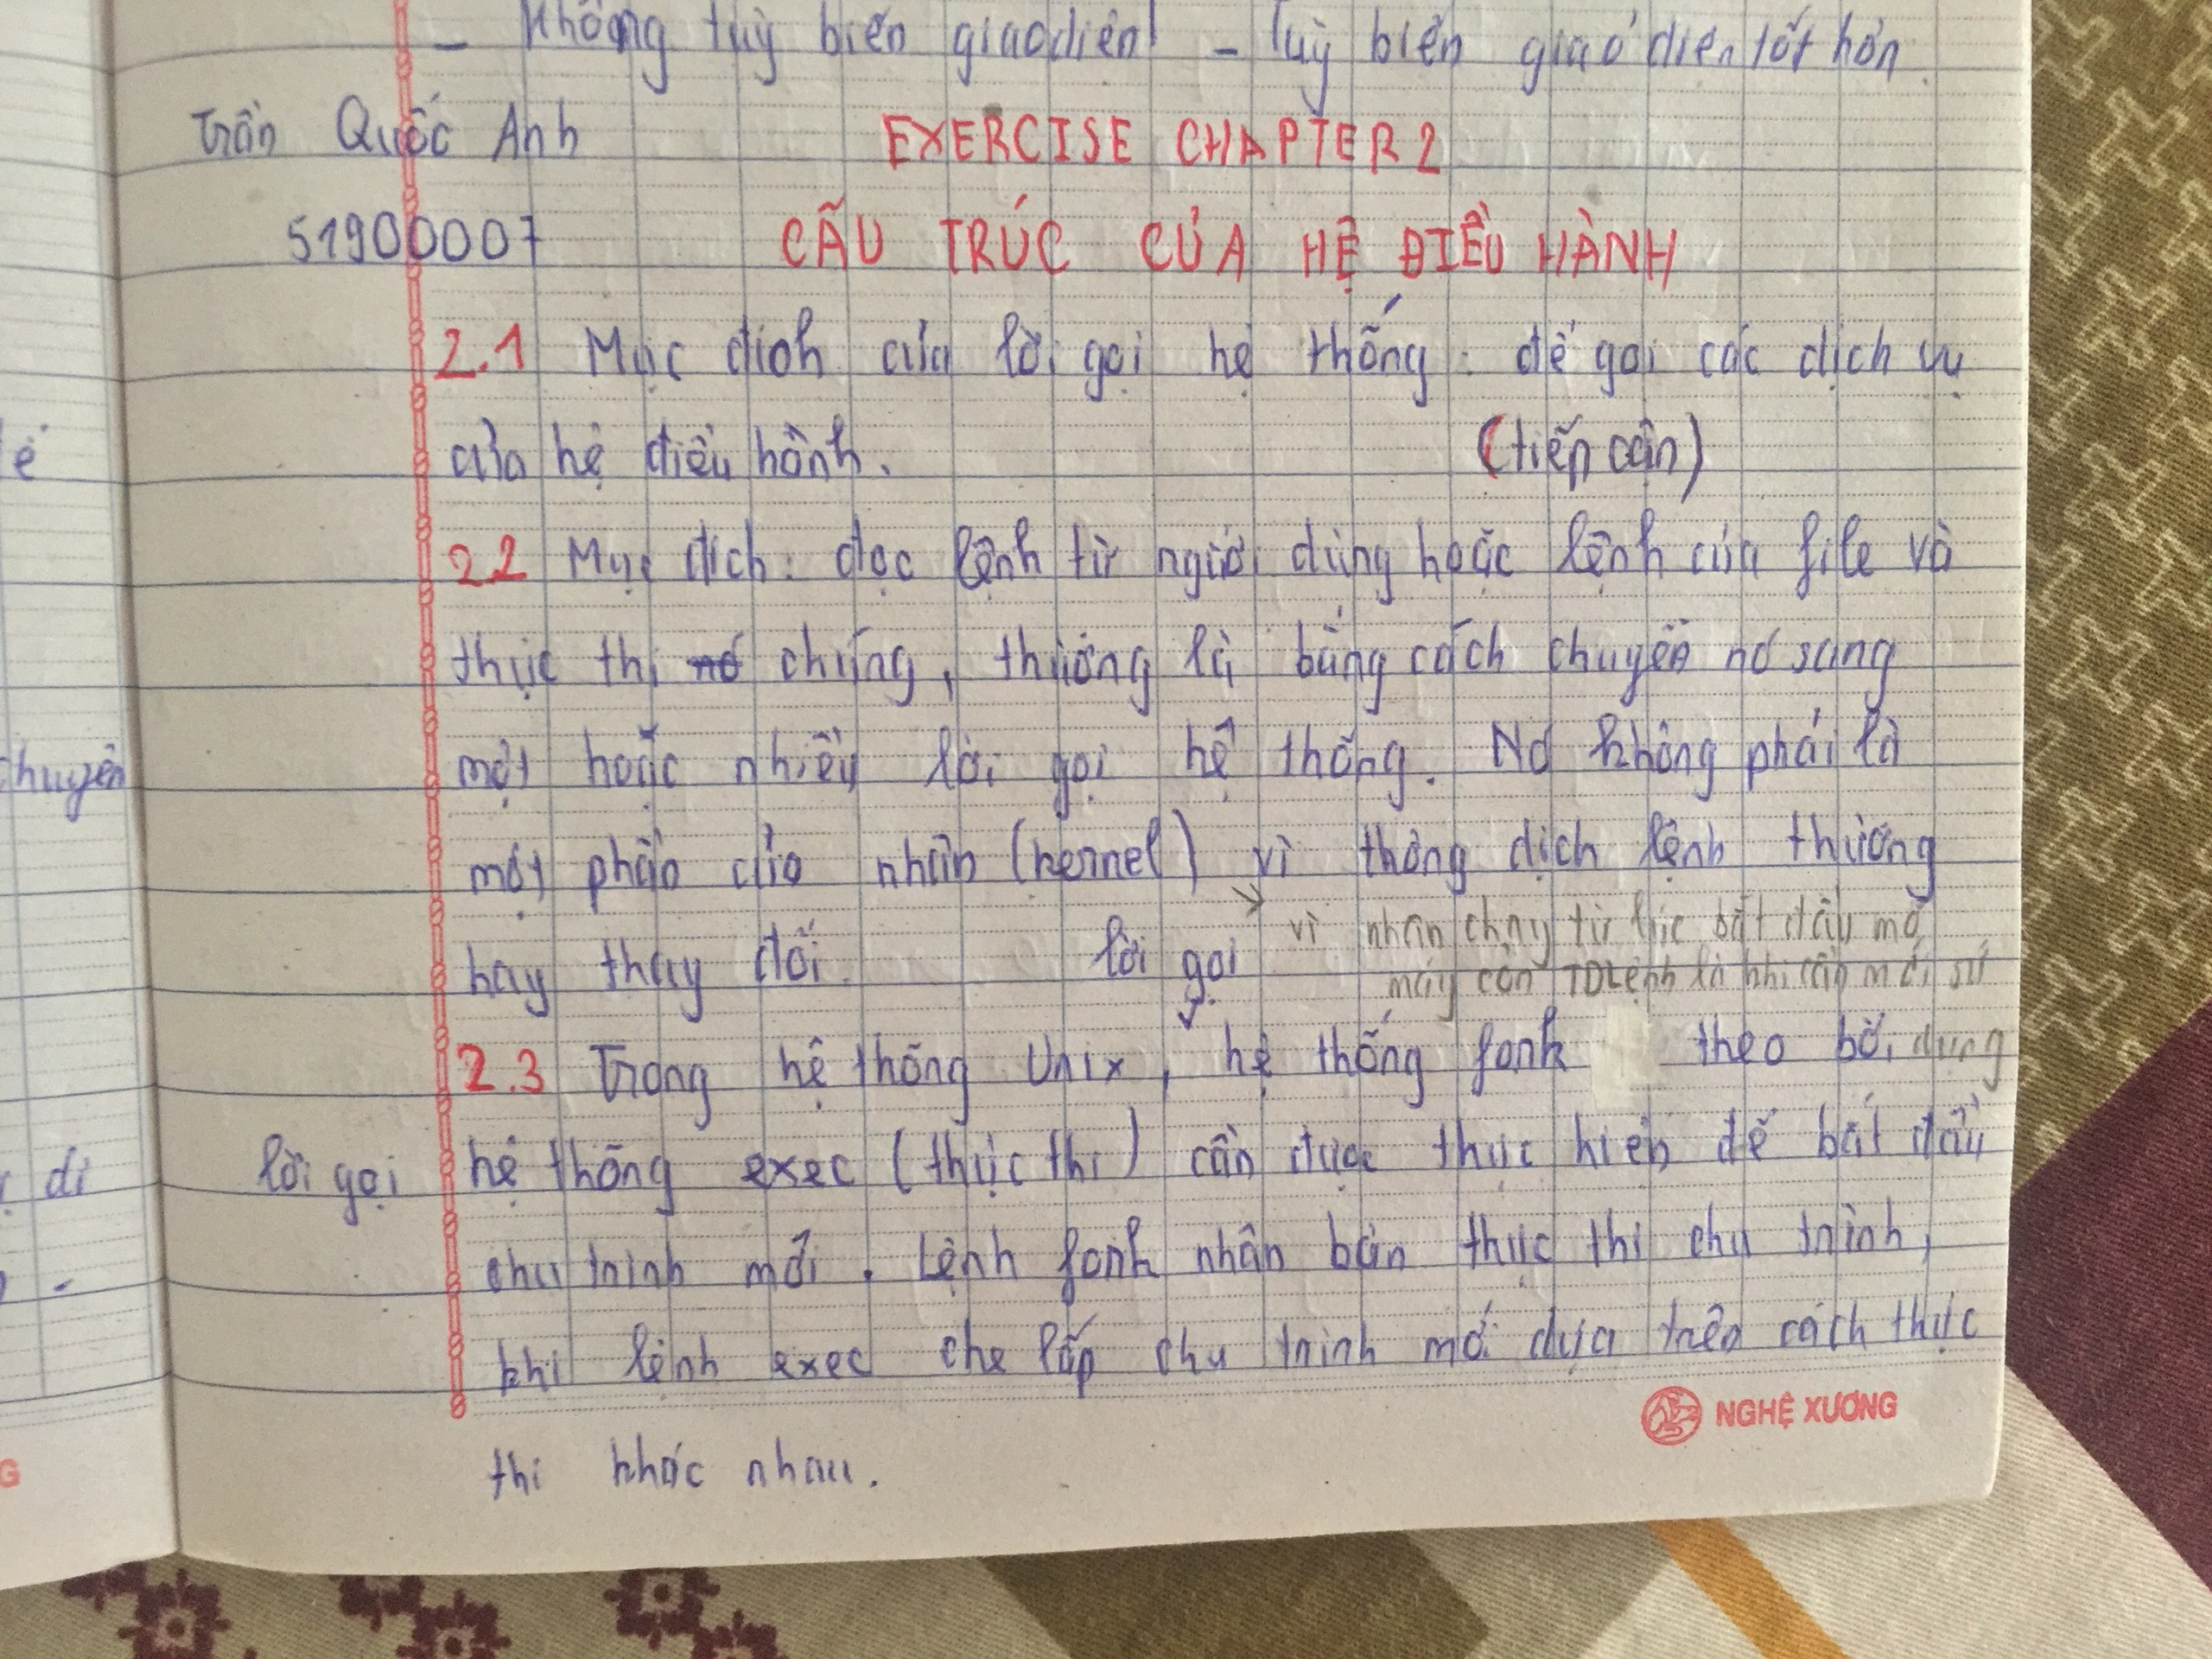 - Không tuỳ biến giao diện - Tuỳ biến giao diện tốt hơn.
Trần Quốc Anh EXERCISE CHAPTER 2
51900007 CẤU TRÚC CỦA HỆ ĐIỀU HÀNH
2.1 Mục đích của lời gọi hệ thống: để gọi các dịch vụ
của hệ điều hành. (tiếp cận)
2.2 Mục đích: đọc lệnh từ người dùng hoặc lệnh của file và
thực thi nó chúng, thường là bằng cách chuyển nó sang
một hoặc nhiều lời gọi hệ thống. Nó không phải là
một phần của nhân (kernel) vì thông dịch lệnh thường
vì nhân chạy từ lúc bắt đầu mở
hay thay đổi. lời gọi
máy còn TDLệnh là khi cần mới sử
2.3 Trong hệ thống Unix, hệ thống fork theo bởi dụng
lời gọi hệ thống exec (thực thi) cần được thực hiện để bắt đầu
chu trình mới. Lệnh fork nhân bản thực thi chu trình,
khi lệnh exec che lấp chu trình mới dựa trên cách thực
thi khác nhau.
NGHỆ XƯƠNG
ể
chuyển
di
G